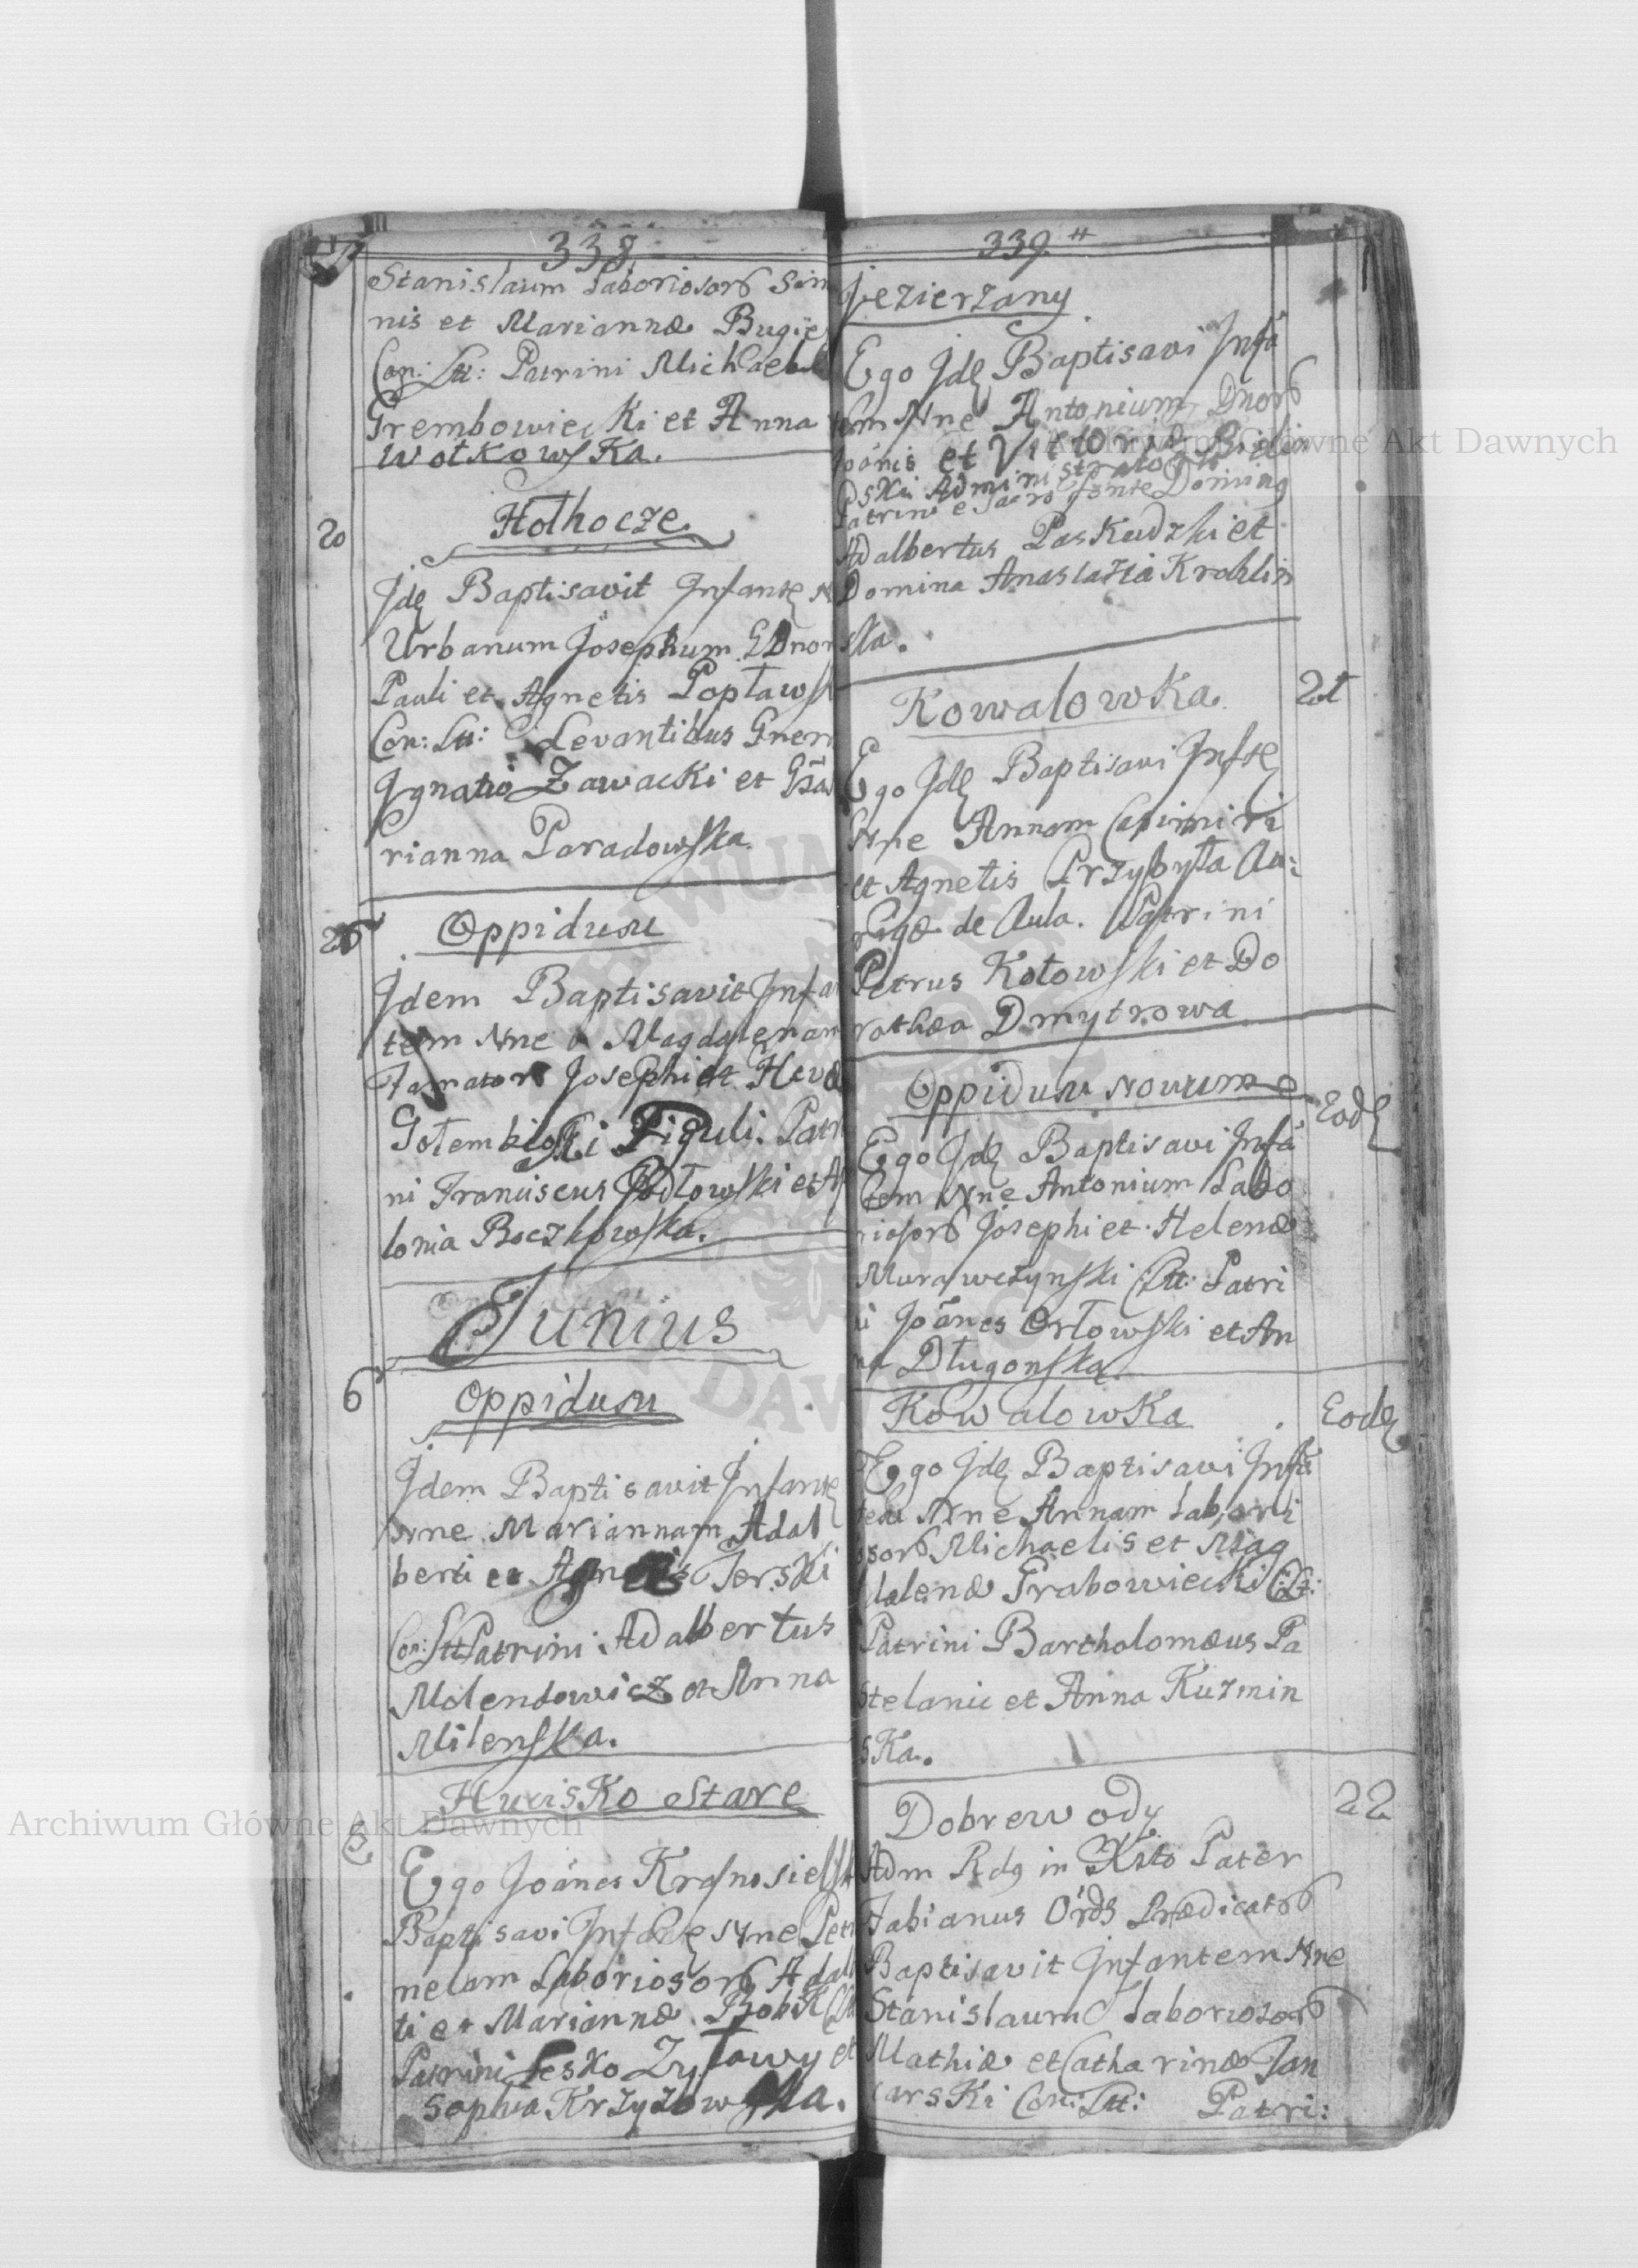 338
Stanislaum Laboriosorũ Sim
nis et Mariannæ Bugie
Con: Ltt: Patrini Michael
Grembowiecki et Anna
Wołkowska.
20
Hołhocze
Jdę Baptisavit Jnfantę N
Urbanum Josephum GDnor
Pauli et Agnetis Popławs
Con: Ltt: Levantibus Gner
Jgnatio Zawacki et Gsa
rianna Paradowska
Oppidum
Jdem Baptisavit Jnfan
tem Nne Magdalenam
Famator Josephi et Hevæ
Gołembioski Figuli. Patri
ni Franciscus Podłowski et A
lonia Boczkowska.
Junius
6
Oppidum
Jdem Baptisavit Jnfantę
Nne Mariannam Adal
berti et Agnetis Jerski
Con: Ltt Patrini Adalbertus
Molendowicz et Anna
Milenska.
Hucisko Stare
Ego Joānes Krasnosiels
Baptisavi Jnfātę Nne Petro
nelam Laboriosorũ Adalb
ti et Mariannæ Bobik
Patrini Lesko Zytawy et
Sophia Krzyzowska.
339
Jezierzany
Ego Jdę Baptisavi Jnfā
tem Nne Antonium Dnorũ
Joānis et Victoriæ
Administrator
Patrini e Sacro fonte Dominq
Adalbertus Paskudzki et
Domina Anastazia Krohlin
ska.
21
Kowalowka
Ego Jdę Baptisavi Jnftę
Nne Annam Casimiri
et Agnetis Przybyła Au:
rigæ de Aula. Patrini
Petrus Kotowski et Do
rothea Dmytrowa
Oppidum Novum
Eodę
Ego Jdę Baptisavi Jnfā
tem Nne Antonium Labo
riosorũ Josephi et Helenæ
Murawczynski Ltt: Patri
ni Joānes Orłowski et An
na Długonska
Kowalowka
Eodę
Ego Jdę Baptisavi Jnfā
tem Nne Annam Labori
osorũ Michaelis et Mag
dalenæ Grabowiecki C: Lt:
Patrini Bartholomæus Pa
stelanic et Anna Kuzmin
ska.
22
Dobrewody
Adm Rdq in Xsto Pater
Fabianus Ordis Prædicatorũ
Baptisavit Jnfantem Nne
Stanislaum Laboriosorũ
Mathiæ et Catharinæ Jan
carski Con: Ltt: Patri:
Archiwum Główne Akt Dawnych
Archiwum Główne Akt Dawnych